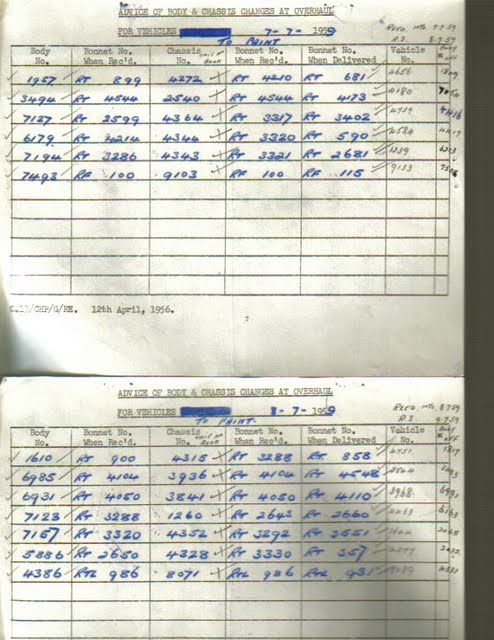 ADVICE OF BODY & CHASSIS CHANGES AT OVERHAUL
FOR VEHICLES 7-7-1959
TO PAINT
7-7-59
8-7-59
Body No. Bonnet No. When Rec'd. Chassis No. Bonnet No. When Rec'd. Bonnet No. When Delivered Vehicle No. Body off
1957 RT 899 4272 RT 4210 RT 681 4656
3494 RT 4544 2540 RT 4544 RT 4173 4180
7127 RT 2599 4364 RT 3317 RT 3402
6179 RT 4214 4344 RT 3320 RT 590 4584
7194 RT 3286 4343 RT 3321 RT 2681
7493 RF 100 9103 RF 100 RF 115 9133
12th April, 1956.
ADVICE OF BODY & CHASSIS CHANGES AT OVERHAUL
FOR VEHICLES 8-7-1959
TO PAINT.
8-7-59
9-7-59
Body No. Bonnet No. When Rec'd. Chassis No. Bonnet No. When Rec'd. Bonnet No. When Delivered Vehicle No. Body off
1610 RT 900 4315 RT 3288 RT 858
6985 RT 4104 3936 RT 4104 RT 4548
6931 RT 4050 3841 RT 4050 RT 4110 3968
7123 RT 3288 1260 RT 2643 RT 2660
7157 RT 3320 4352 RT 3292 RT 3551
5886 RT 2650 4328 RT 3330 RT 357
4386 RTL 986 8071 RTL 986 RTL 931